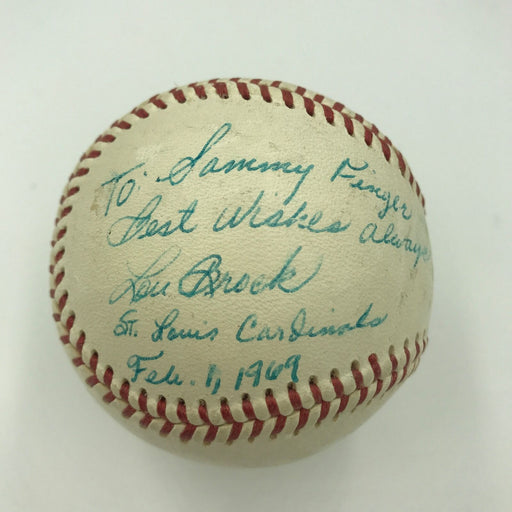 To: Sammy Finger
Best Wishes Always
Lou Brock
St. Louis Cardinals
Feb. 1, 1969